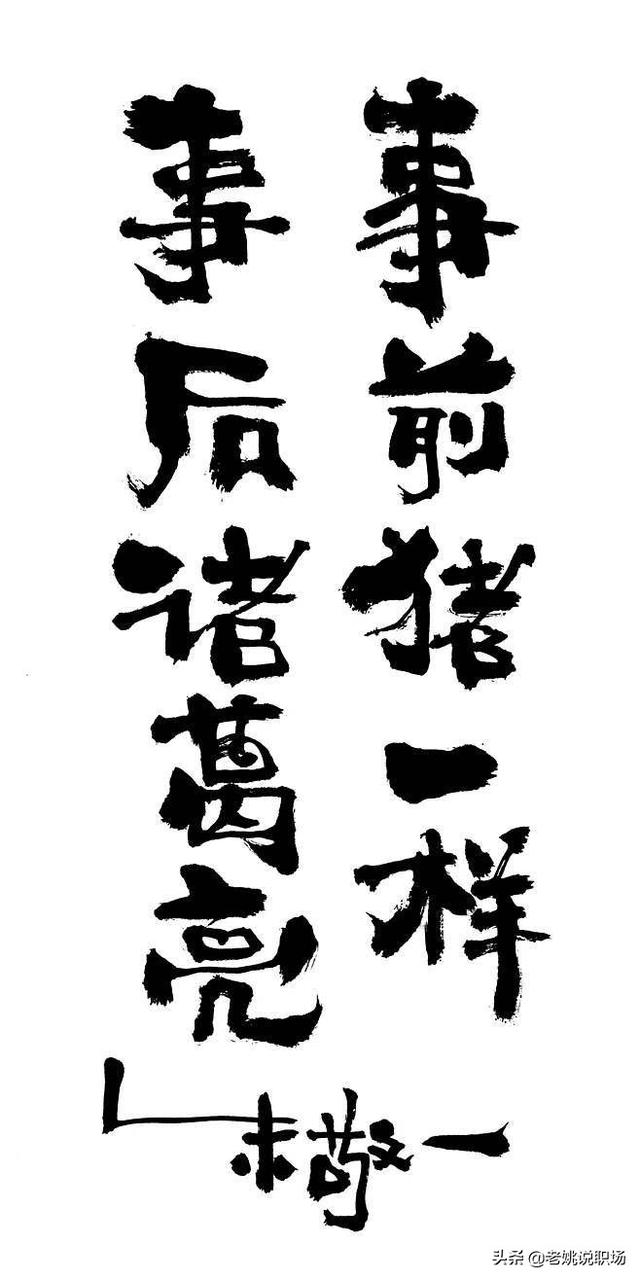 事前猪一样
事后诸葛亮
朱敬一
头条 @老姚说职场